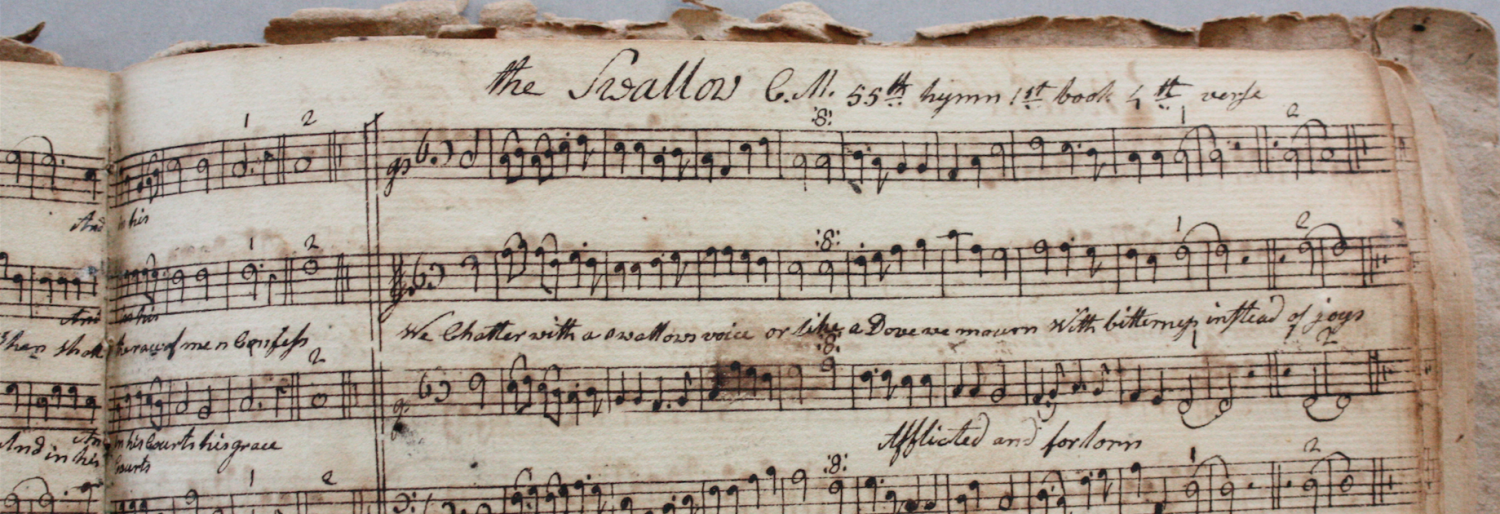 the Swallow C.M. 55th hymn 1st book 4th verse
1 2
1 2
And in his
1 2
1 2
And in his
We Chatter with a swallows voice or like a Dove we mourn With bitterness instead of joys
Shan shall the race of men Confess
2 1 2
Afflicted and forlorn
And in his Courts his grace
And in his Courts
1 2
1 2